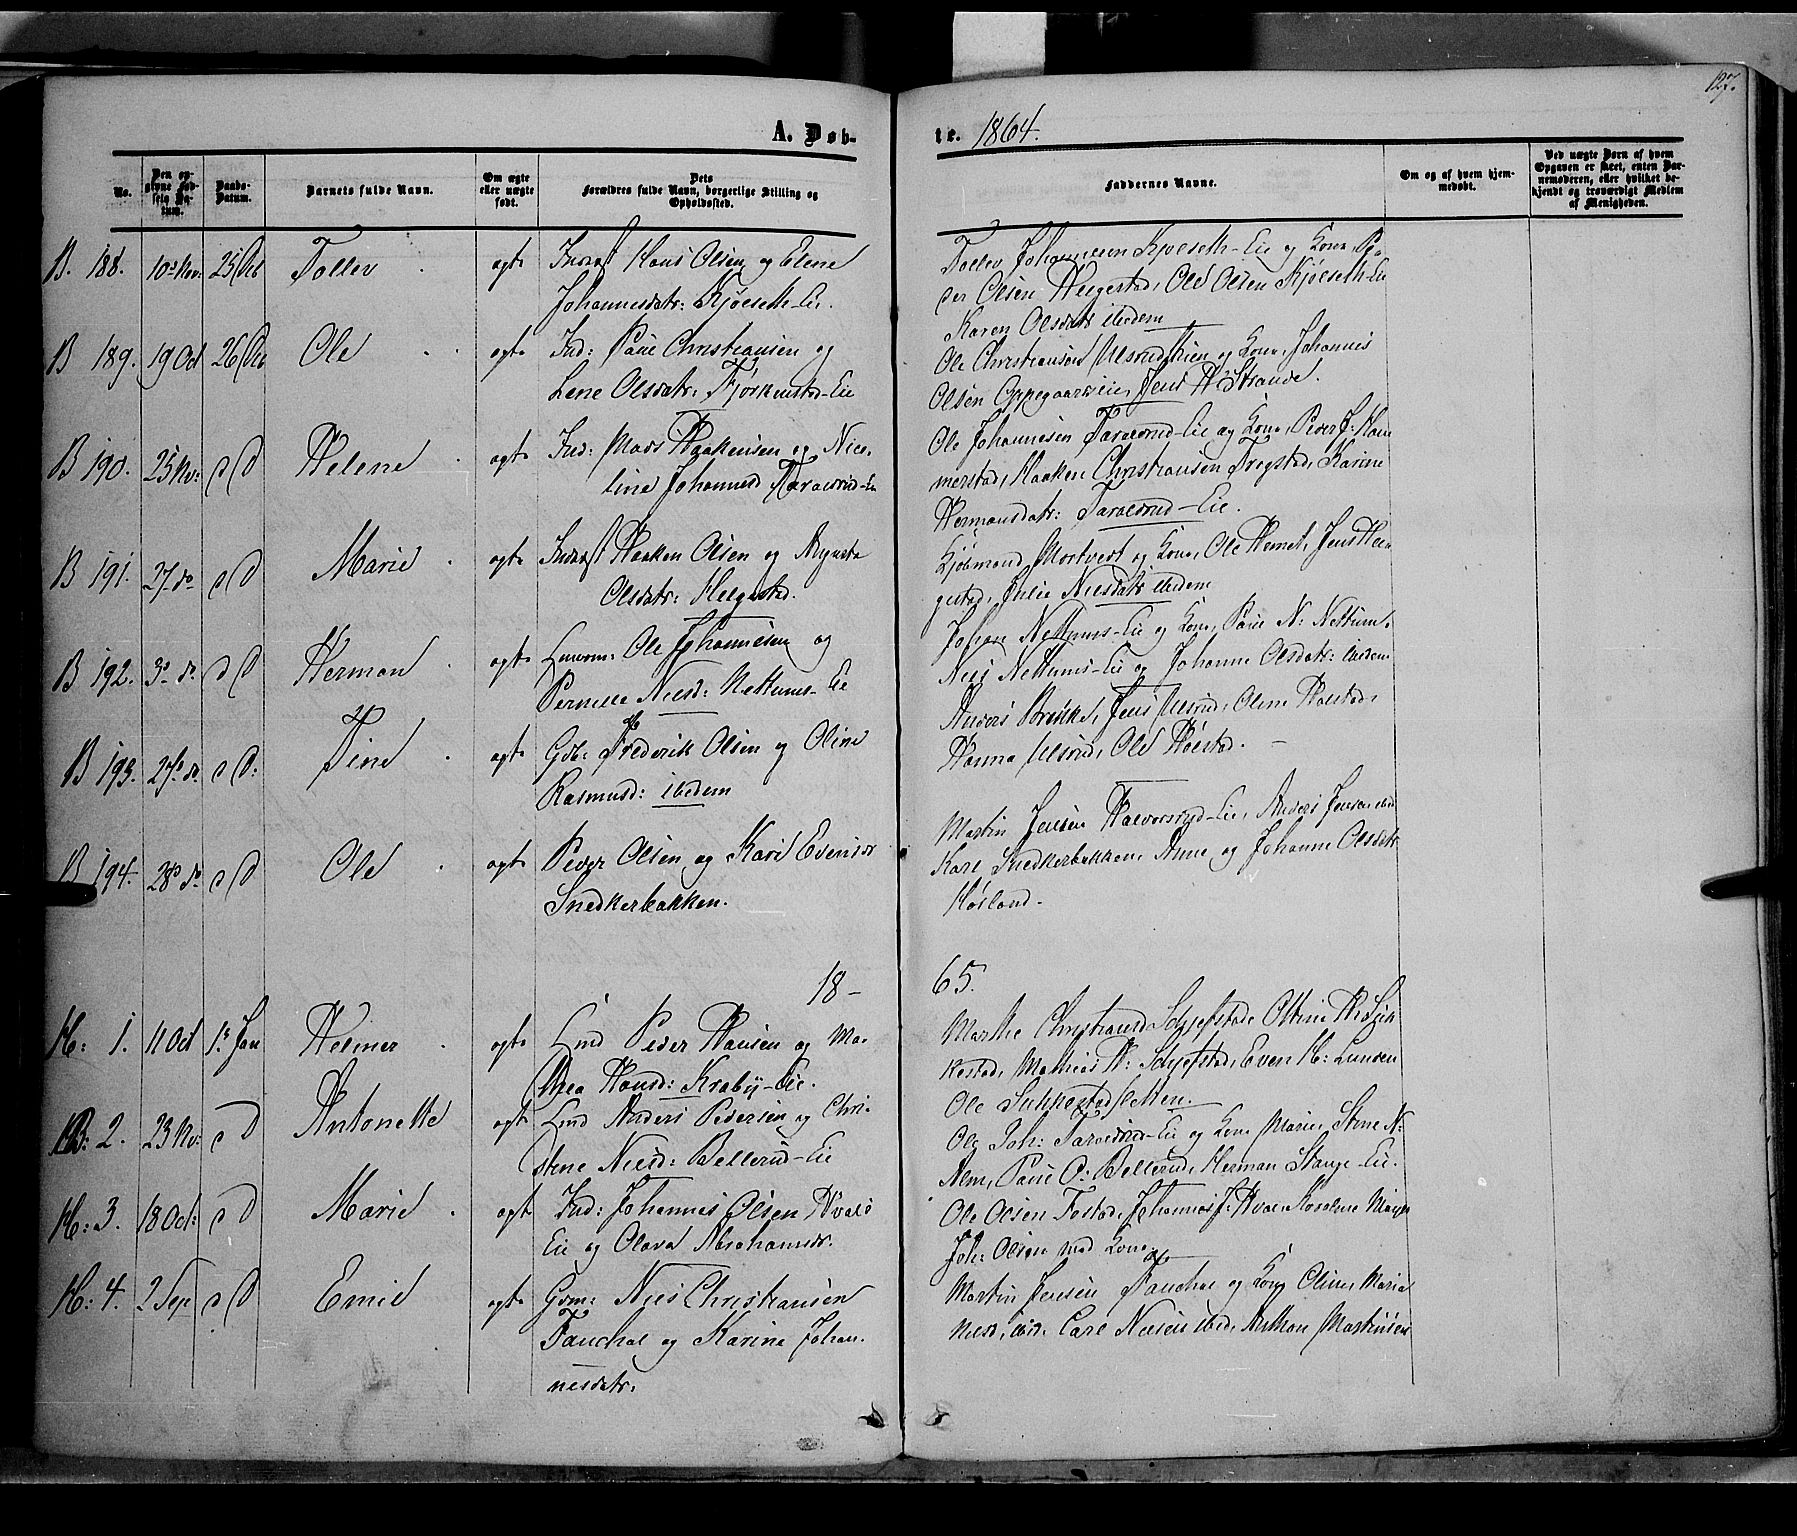 127.
A. Døb-
te. 1864.
No.
Den opgivne Fødsels Datum.
Daabs-Datum.
Barnets fulde Navn.
Om ægte eller uægte født.
Dets Forældres fulde Navn, borgerlige Stilling og Opholdssted.
Faddernes Navne.
Om og af hvem hjemmedøbt.
Ved uægte Børn af hvem Opgaven er skeet, enten Barnemoderen, eller hvilket bekjendt og troværdigt Medlem af Menigheden.
B. 188. 10de Nov: 25 Dec Tollev ægte Hans Olsen og Elene
Johannesdatr: Kjøseth-Eie.
Tollev Johannesen Kjøseth-Eie og Kone, Pe-
der Olsen Helgestad, Ole Olsen Kjøseth-Eie
Karen Olsdatr ibidem
B 189. 19 Oct 26 Dec Ole ægte Ind: Paul Christiansen og
Lene Olsdatr: Fjørkenstad-Eie
Ole Christiansen Ulsrudeien og Kone, Johannes
Olsen Oppegaardseie, Jens H Strande.
B 190. 25 Nov: d D Helene ægte Ind: Mads Haakensen og Nico-
line Johannesd Taralsrud-Eie
Ole Johannesen Taralsrud-Eie og Kone, Peder J: Ham
merstad, Haaken Christiansen Tregstad, Karine
Hermansdatr: Taralsrud-Eie.
B 191. 27 do d D Marie ægte Haaken Olsen og Agusta
Olsdatr: Helgestad.
Kjøbmand Mortvedt og Kone, Ole Hemet, Jens Hel-
gestad, Julie Nilsdatr ibidem
B 192. 3 do d D Herman ægte Ole Johannesen og
Pernille Nilsd: Nettums-Eie
Johan Nettums-Eie og Kone, Paul N: Nettum,
Nils Nettums-Eie og Johanne Olsdatr: ibidem
B 193. 27 do d D: Tine ægte Gdb: Frederik Olsen og Oline
Rasmusd: ibidem
Anders Brekke, Jens Ulsrud, Oline Holstad,
Hanna Ulsrud, Ole Holstad. -
B 194. 28 do d D Ole ægte Peder Olsen og Kari Evensdr
Snedkerbakken.
Martin Jensen Halvorsrud-Eie, Anders Jensen ibid
Kari Snedkerbakken, Anne og Johanne Olsdatr
Høsland.
18-
65.
H: 1. 11 Oct 1 Jan Helmer ægte Ind Peder Hansen og Ma-
thea Hansd: Kraby-Eie.
Marthe Christiansd Schjefstad, Ottine H:
kestad, Mathias H: Schjefstad, Even H: Lunden
Ole Sukkestadsletten.
B: 2. 23 Nv: d D Antonette ægte Ind Anders Pedersen og Chri-
stine Nilsd: Bellerud-Eie
Ole Joh: Taralsrud-Eie og Kone Marie, Stine N:
Alm, Paul O: Bellerud, Herman Stange-Eie.
H: 3. 18 Oct: d D Marie ægte Ind: Johannes Olsen Hvals
Eie og Olava Abrahamsdr.
Ole Olsen Fostad, Johannes J: Hval,
Joh: Olsen med Kone.
H: 4. 2 Sep d D Emil ægte Gdm: Nils Christiansen
Fauchal og Karine Johan-
nesdatr.
Martin Jensen Fauchal og Kone Oline, Maria
Nilsd, ibid. Carl Nilsen ibid, Anthon Martinsen